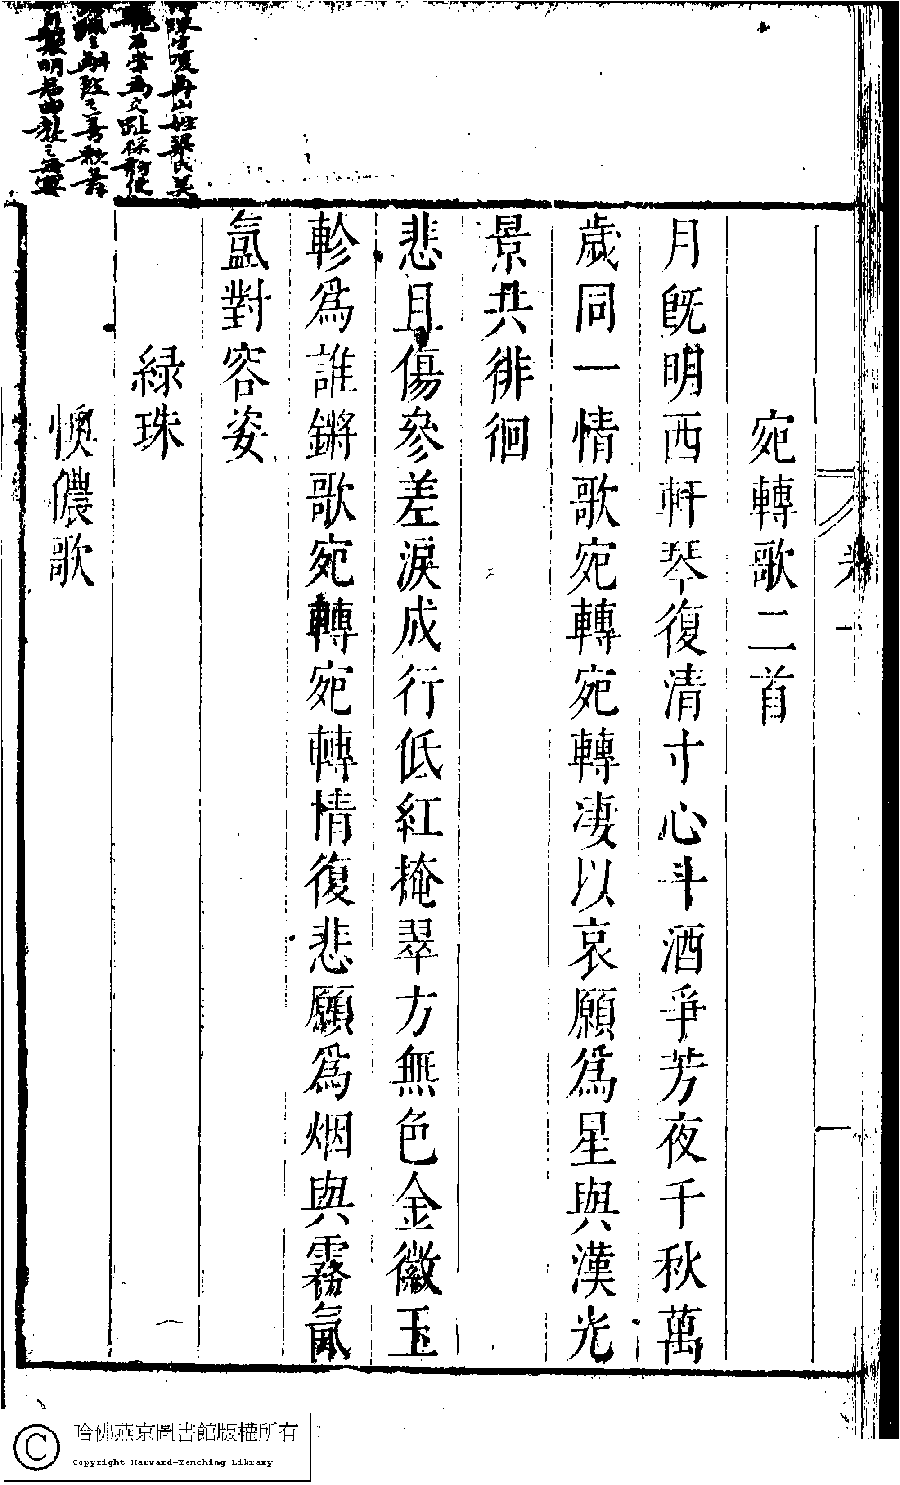 卷一
一
宛轉歌二首
月既明西軒琴復清寸心斗酒爭芳夜千秋萬
歲同一情歌宛轉宛轉凄以哀願為星與漢光
景共徘徊
悲且傷參差淚成行低紅掩翠方無色金徽玉
軫為誰鏘歌宛轉宛轉情復悲願為烟與霧氤
氳對容姿
綠珠
懊儂歌
山姓梁氏美
為交趾採訪使
善歌舞
明君曲教之
哈佛燕京圖書館版權所有
Copyright Harvard-Yenching Library